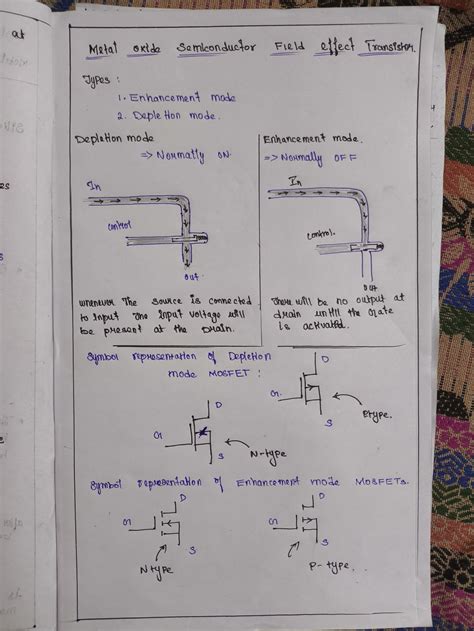 at
Metal oxide Semiconductor Field effect Transistor.
Types :
1. Enhancement mode
2. Depletion mode.
Depletion mode
=> Normally ON
In
control
out
whenever The source is connected
to input The input voltage will
be present at the Drain.
Enhancement mode.
=> Normally OFF
In
control.
out
There will be no output at
drain untill the Gate
is activated.
Symbol representation of Depletion
mode MOSFET :
D
G
S
N-type
D
G
S
Ptype.
Symbol representation of Enhancement mode MOSFETs.
D
G
S
N type.
D
G
S
P-type.